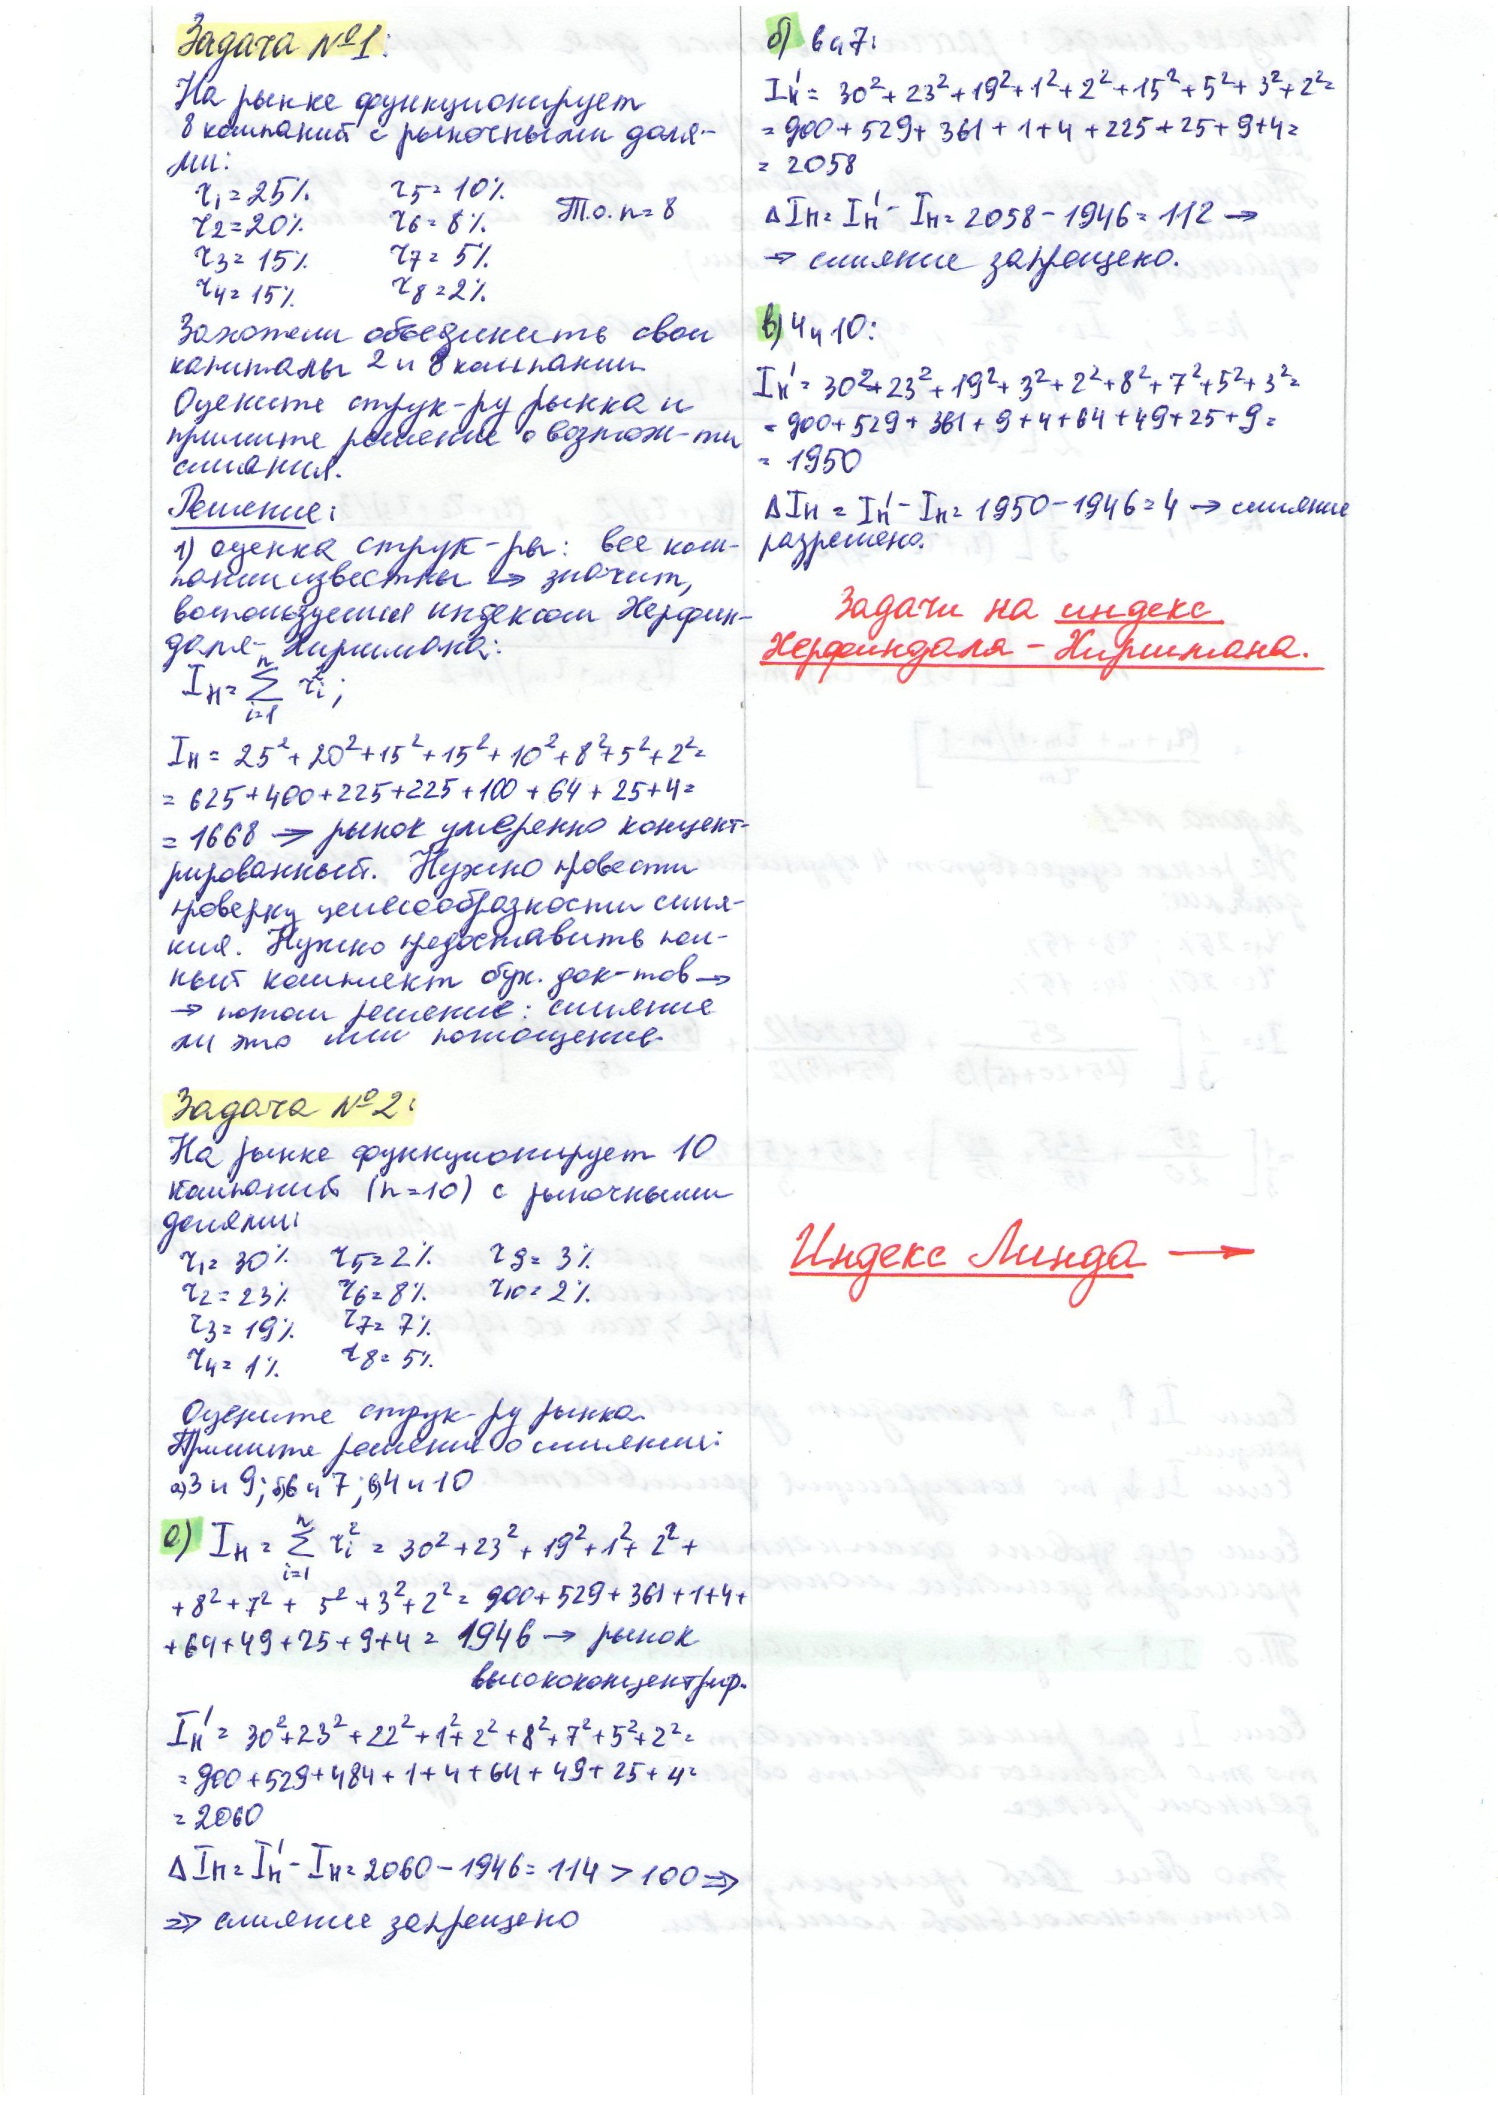 Задача №1:
На рынке функционирует
8 компаний с рыночными доля-
ми:
τ₁=25% τ₅=10%
τ₂=20% τ₆=8% Т.о. n=8
τ₃=15% τ₇=5%
τ₄=15% τ₈=2%
Захотели объединить свои
капиталы 2 и 8 компании.
Оцените струк-ру рынка и
примите решение о возмож-ти
слияния.
Решение:
1) оценка струк-ры: все ком-
пании известны → значит,
воспользуемся индексом Херфин-
даля-Хиршмана:
Iн = Σ τᵢ²;
n
i=1
Iн = 25²+20²+15²+15²+10²+8²+5²+2²=
= 625+400+225+225+100+64+25+4=
= 1668 → рынок умеренно концент-
рированный. Нужно провести
проверку целесообразности слия-
ния. Нужно предоставить пол-
ный комплект бух. док-тов →
→ потом решение: слияние
ли это или поглощение.
Задача №2:
На рынке функционирует 10
компаний (n=10) с рыночными
долями:
τ₁=30% τ₅=2% τ₉=3%
τ₂=23% τ₆=8% τ₁₀=2%
τ₃=19% τ₇=7%
τ₄=1% τ₈=5%
Оцените струк-ру рынка.
Примите решение о слиянии:
а)3 и 9; б)6 и 7; в)4 и 10
а) Iн = Σ τᵢ² = 30²+23²+19²+1²+2²+
n
i=1
+8²+7²+5²+3²+2²= 900+529+361+1+4+
+64+49+25+9+4 = 1946 → рынок
высококонцентрир.
Iн' = 30²+23²+22²+1²+2²+8²+7²+5²+2²=
= 900+529+484+1+4+64+49+25+4=
= 2060
ΔIн = Iн' - Iн = 2060-1946=114 > 100 ⇒
⇒ слияние запрещено
б) 6 и 7:
Iн' = 30²+23²+19²+1²+2²+15²+5²+3²+2²=
= 900+529+361+1+4+225+25+9+4=
= 2058
ΔIн = Iн' - Iн = 2058-1946=112 →
→ слияние запрещено.
в) 4 и 10:
Iн' = 30²+23²+19²+3²+2²+8²+7²+5²+3²=
= 900+529+361+9+4+64+49+25+9=
= 1950
ΔIн = Iн' - Iн = 1950-1946=4 → слияние
разрешено.
Задачи на индекс
Херфиндаля - Хиршмана.
Индекс Линда →